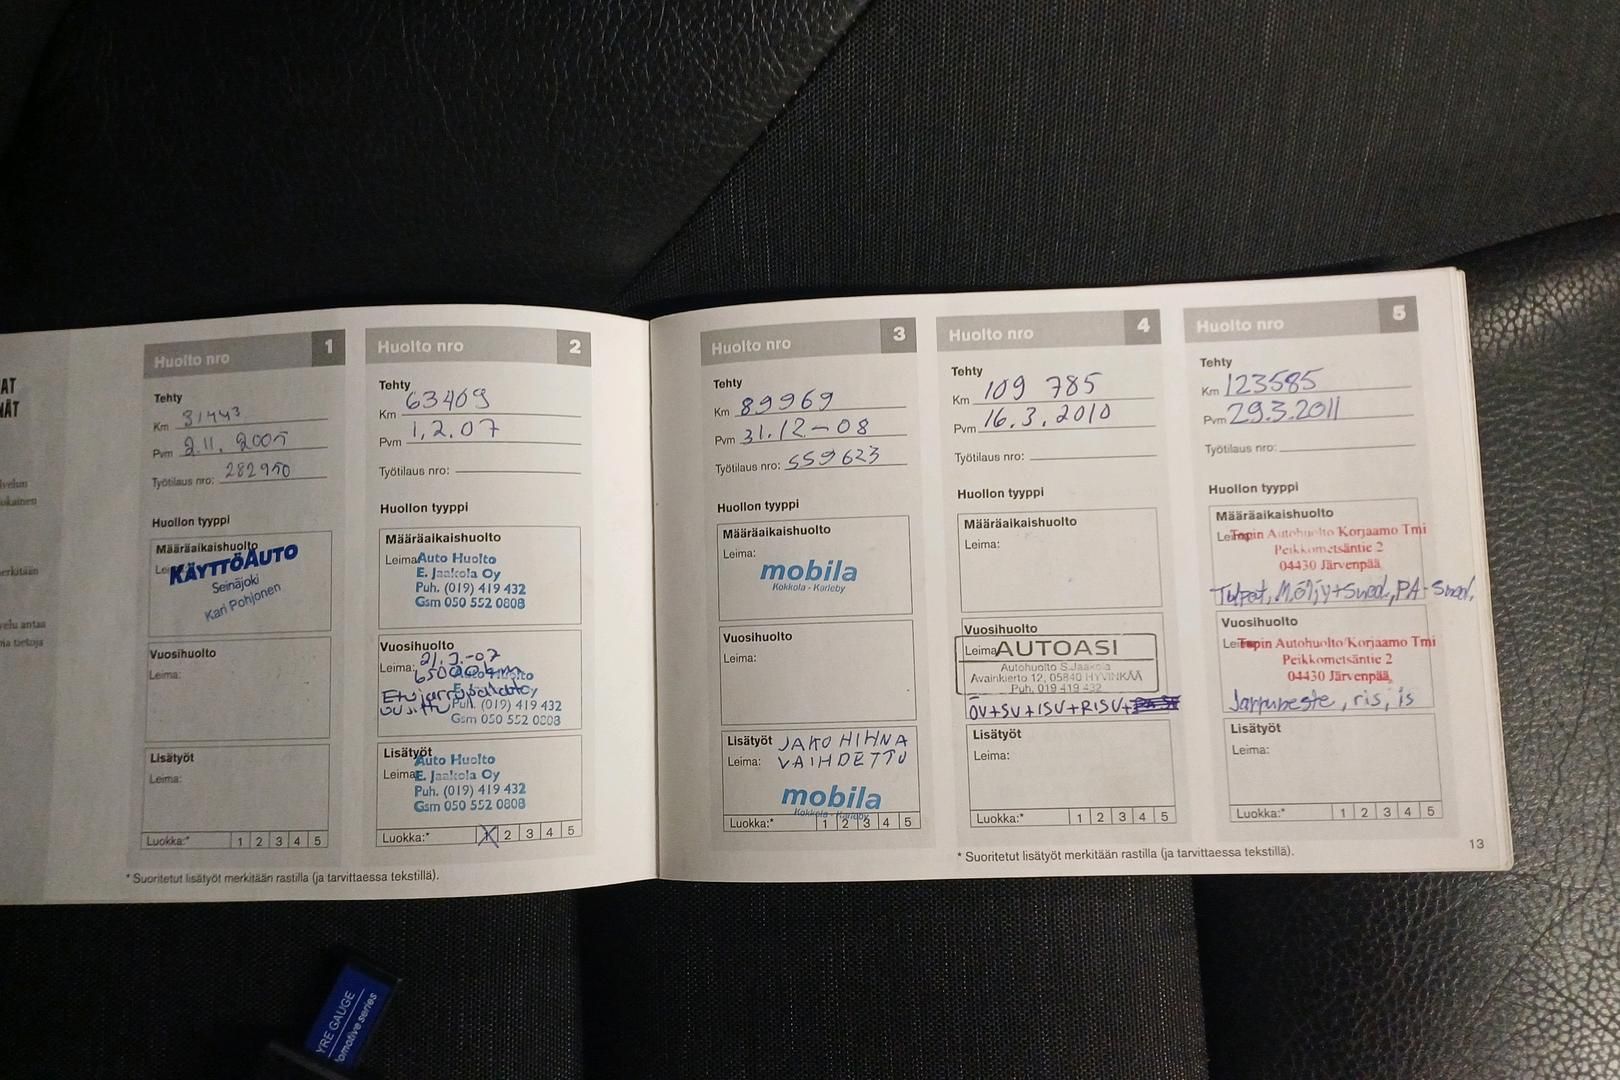 AT
ÄT
lvelun
okainen
erkitään
velu antaa
na tietoja
Huolto nro 1
Tehty
Km 31443
Pvm 2.11.2005
Työtilaus nro: 282950
Huollon tyyppi
Määräaikaishuolto
Leima:
KÄYTTÖAUTO
Seinäjoki
Kari Pohjonen
Vuosihuolto
Leima:
Lisätyöt
Leima:
Luokka:* 1 2 3 4 5
Huolto nro 2
Tehty
Km 63409
Pvm 1.2.07
Työtilaus nro:
Huollon tyyppi
Määräaikaishuolto
Leima: Auto Huolto
E. Jaakola Oy
Puh. (019) 419 432
Gsm 050 552 0808
Vuosihuolto
Leima: 21.3.-07
65000 km
Auto Huolto
Etujarrupalat
uusittu Puh. (019) 419 432
Gsm 050 552 0808
Lisätyöt
Auto Huolto
Leima: E. Jaakola Oy
Puh. (019) 419 432
Gsm 050 552 0808
Luokka:* 1 2 3 4 5
* Suoritetut lisätyöt merkitään rastilla (ja tarvittaessa tekstillä).
Huolto nro 3
Tehty
Km 89969
Pvm 31.12-08
Työtilaus nro: 559623
Huollon tyyppi
Määräaikaishuolto
Leima:
mobila
Kokkola - Karleby
Vuosihuolto
Leima:
Lisätyöt JAKOHIHNA
Leima: VAIHDETTU
mobila
Kokkola - Karleby
Luokka:* 1 2 3 4 5
Huolto nro 4
Tehty
Km 109 785
Pvm 16.3.2010
Työtilaus nro:
Huollon tyyppi
Määräaikaishuolto
Leima:
Vuosihuolto
Leima: AUTOASI
Autohuolto S.Jaakola
Avainkierto 12, 05840 HYVINKÄÄ
Puh. 019 419 432
ÖV+SV+ISV+RISV+
Lisätyöt
Leima:
Luokka:* 1 2 3 4 5
* Suoritetut lisätyöt merkitään rastilla (ja tarvittaessa tekstillä).
Huolto nro 5
Tehty
Km 123585
Pvm 29.3.2011
Työtilaus nro:
Huollon tyyppi
Määräaikaishuolto
Leima: Topin Autohuolto Korjaamo Tmi
Peikkometsäntie 2
04430 Järvenpää
Tulpat, M.öljy+Suod., PA-Suod.
Vuosihuolto
Leima: Topin Autohuolto/Korjaamo Tmi
Peikkometsäntie 2
04430 Järvenpää
Jarruneste, ris, is
Lisätyöt
Leima:
Luokka:* 1 2 3 4 5
13
YRE GAUGE
tomotive series